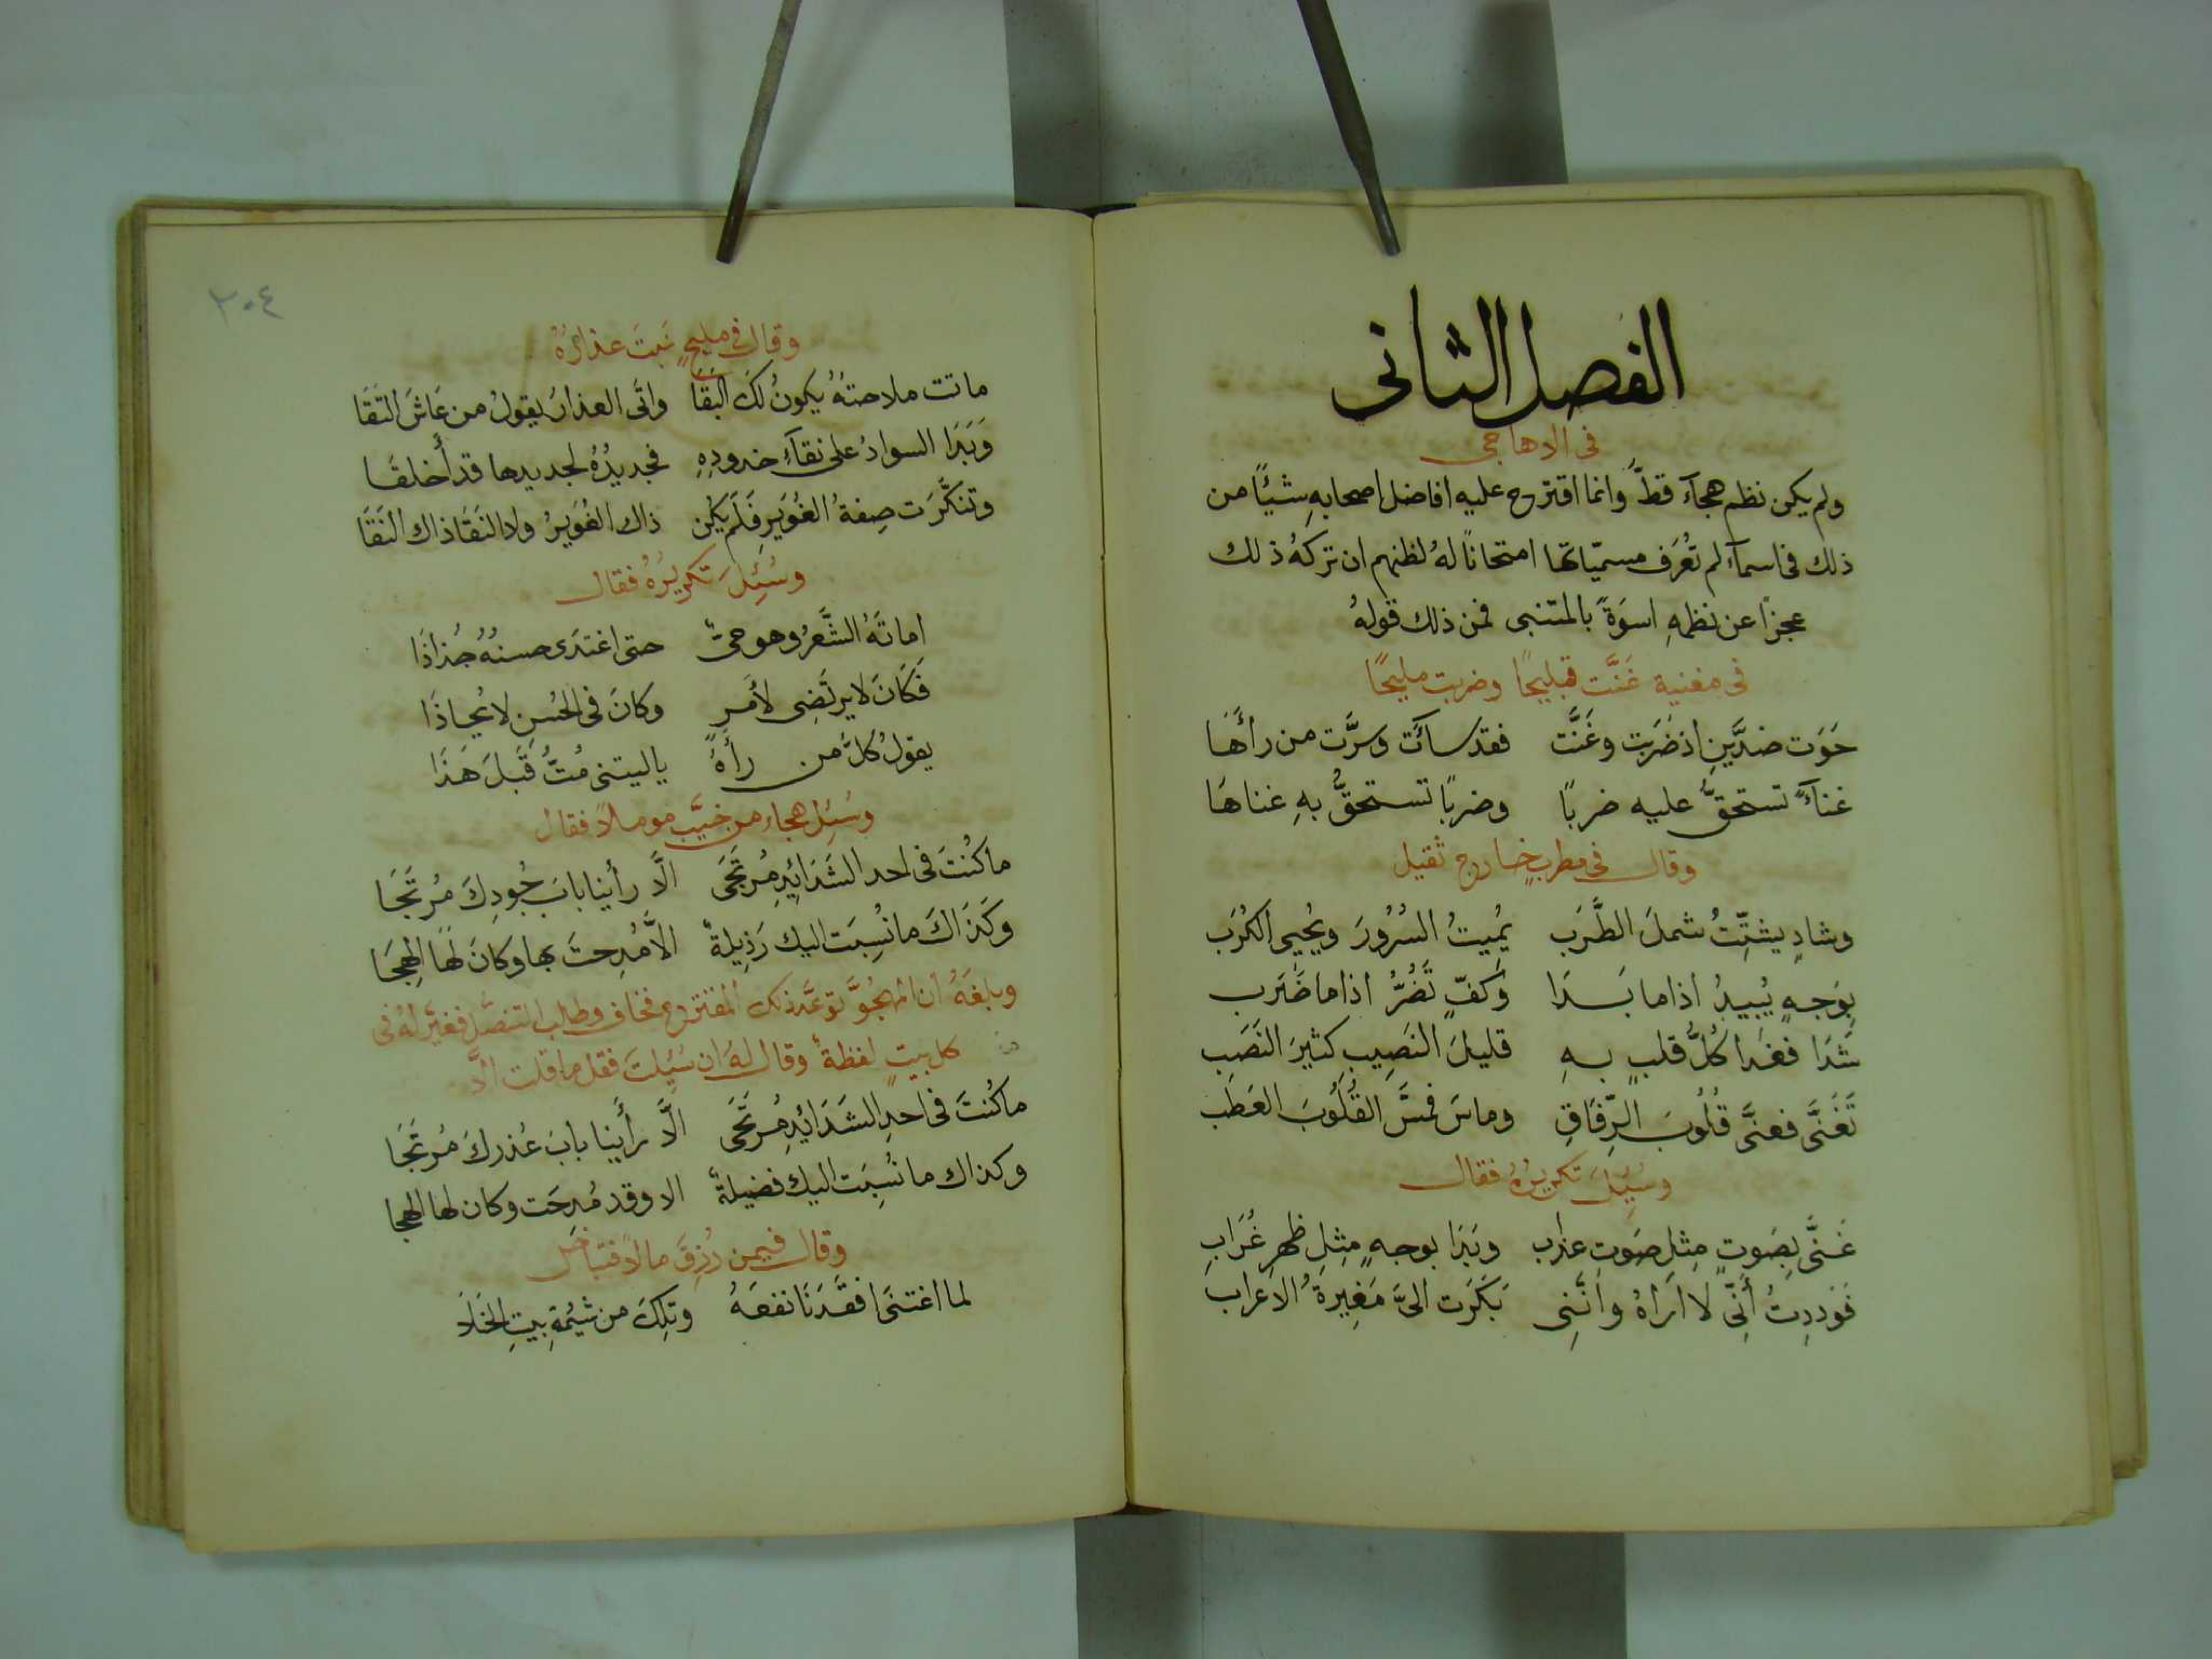 الفصل الثاني
في الاهاجي
ولم يكن نظم هجآء قطّ وانما اقترح عليه افاضل اصحابهِ شيئًا من
ذلك في اسمآء لم تُعرَف مسميّاتها امتحانًا لهُ لظنهم ان تركهُ ذلك
عجزًا عن نظمهِ اسوَةً بالمتنبي فمن ذلك قولهُ
في مغنية غَنَّت قبليحًا وضربت مليحًا
حَوَت ضدَّينِ اذ ضَرَبت وغَنَّت فقد سآئَت وسرَّت من رأَهَا
غنآءً تستحقُّ عليه ضربًا وضربًا تستحقُّ بهِ غناهَا
وقال في مطربٍ خارج ثقيل
وشادٍ يشتِّتُ شملَ الطَّرَب يُمِيتُ السُرُورَ ويُحيي الكُرَب
بِوَجهٍ يُبِيدُ اذا ما بَدَا وكَفٍّ تَضُرُّ اذا ما ضَرَب
شَدَا فغدا كُلُّ قلبٍ بهِ قليلَ النَصِيبِ كثيرَ النَصَب
تَغَنَّى فعنَّى قُلُوبَ الرِّفَاقِ وماسَ فمسَّ القُلُوبَ العَطَب
وسُئِلَ تكريرهُ فقال
غَنَّى بِصَوتٍ مِثلِ صَوتِ عذاب وبَدَا بوجهٍ مِثلِ ظهرِ غُرَابِ
فَوَدِدتُ أَنِّي لا اَرَاهُ وانَّنِي بَكَرَت اليَّ مَغِيرةُ الاعراب
٢٠٤
وقال في مليحٍ نَبتَ عذارُهُ
ماتت ملاحتهُ يكونُ لكَ البَقَا واتَى العذارُ يقولُ من عَاشَ التَقَا
وَبَدَا السوادُ على نقآءِ خدودِهِ فجديدُهُ لجديدها قد أَخلقَا
وتنكَّرَت صِفةُ الغُوَيرِ فَلَم يكُن ذاك الغُوَيرُ ولا النَقَا ذاك النَقَا
وسُئِلَ تكريرُهُ فقال
اماتَهُ الشَّعرُ وهو حيٌّ حتى اغتدَى حسنهُ جُذاذَا
فَكَانَ لا يرتَضِي لأَمرٍ وكانَ في الحُسنِ لا يُحاذَا
يقولُ كلُّ من رأهُ يا ليتني مُتُّ قَبلَ هَذَا
وسُئِل هجاء من خيَّب موملاً فقال
ما كُنتَ في احد الشَدَائِدِ مُرتَجَى الَّا رأينا بابَ جُودِكَ مُرتَجَا
وكَذَاكَ ما نُسِبَت اليك رَذِيلةٌ الَّا مُدِحتَ بها وكانَ لهَا الهِجَا
وبلغَهُ ان المهجُوَّ توعَّد ذلك المقترح فخاف وطلب التنصُّل فغيَّر لهُ في
كل بيتٍ لفظةً وقال لهُ ان سُئِلتَ فقل ما قلت الَّا
ما كُنتَ في احدِ الشَدَائِدِ مُرتَجَى الَّا رأَينا بابَ عُذرِكَ مُرتَجَا
وكذاك ما نُسِبَت اليك فضيلةٌ الا وقد مُدِحَت وكان لها الهجا
وقال فيمن رُزِقَ مالاً فتباخل
لما اغتنَى افقَدَنَا نفعَهُ وتِلكَ من شِيْمَةِ بيتِ الخَلَا